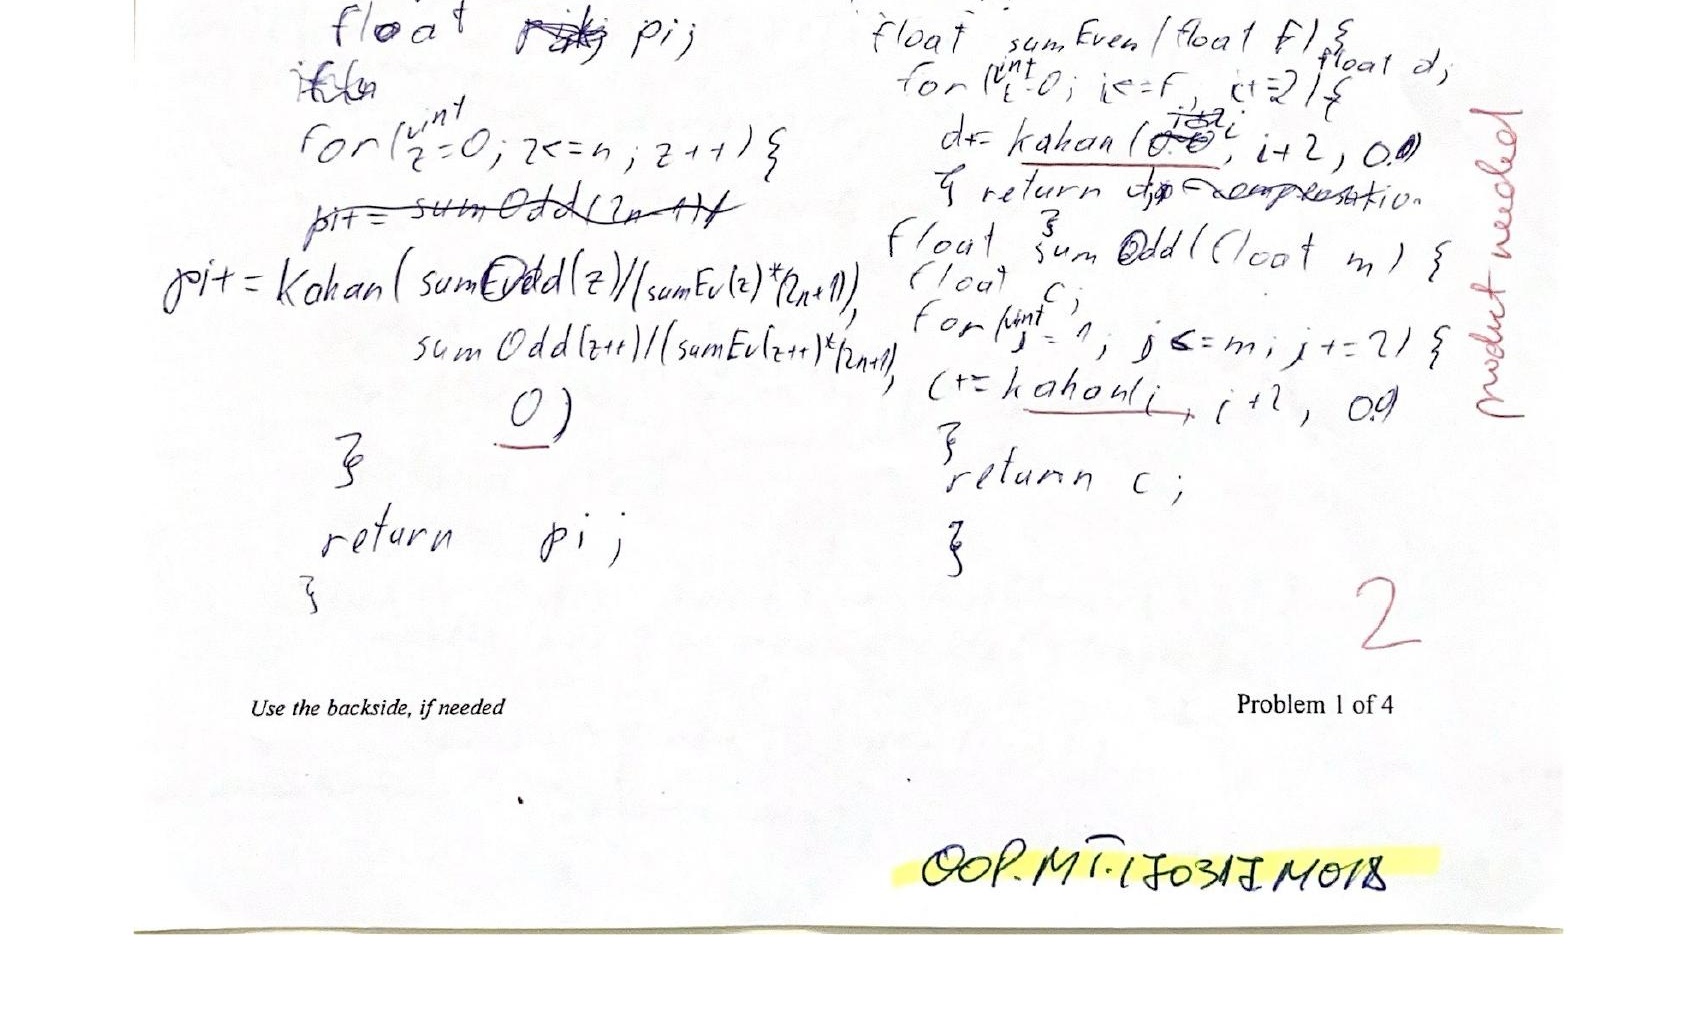 float pi;
for(int z=0; z<=n; z++) {
pi+= sumOdd(2n-1)/
pi+= Kahan( sumOdd(z)/(sumEv(z)*(2n+1)),
sumOdd(z++)/(sumEv(z++)*(2n+1)),
0)
}
return pi;
}
float sumEven (float F) {
float d;
for (int i=0; i<=F, i+=2) {
d+= kahan (i, i+2, 0.0)
} return
}
float sum Odd (float m) {
float c;
for (int j=1; j<=m; j+=2) {
c+= kahan(j, j+2, 0.0)
}
return c;
}
product needed
2
Use the backside, if needed
Problem 1 of 4
OOP.MT.170317.M018